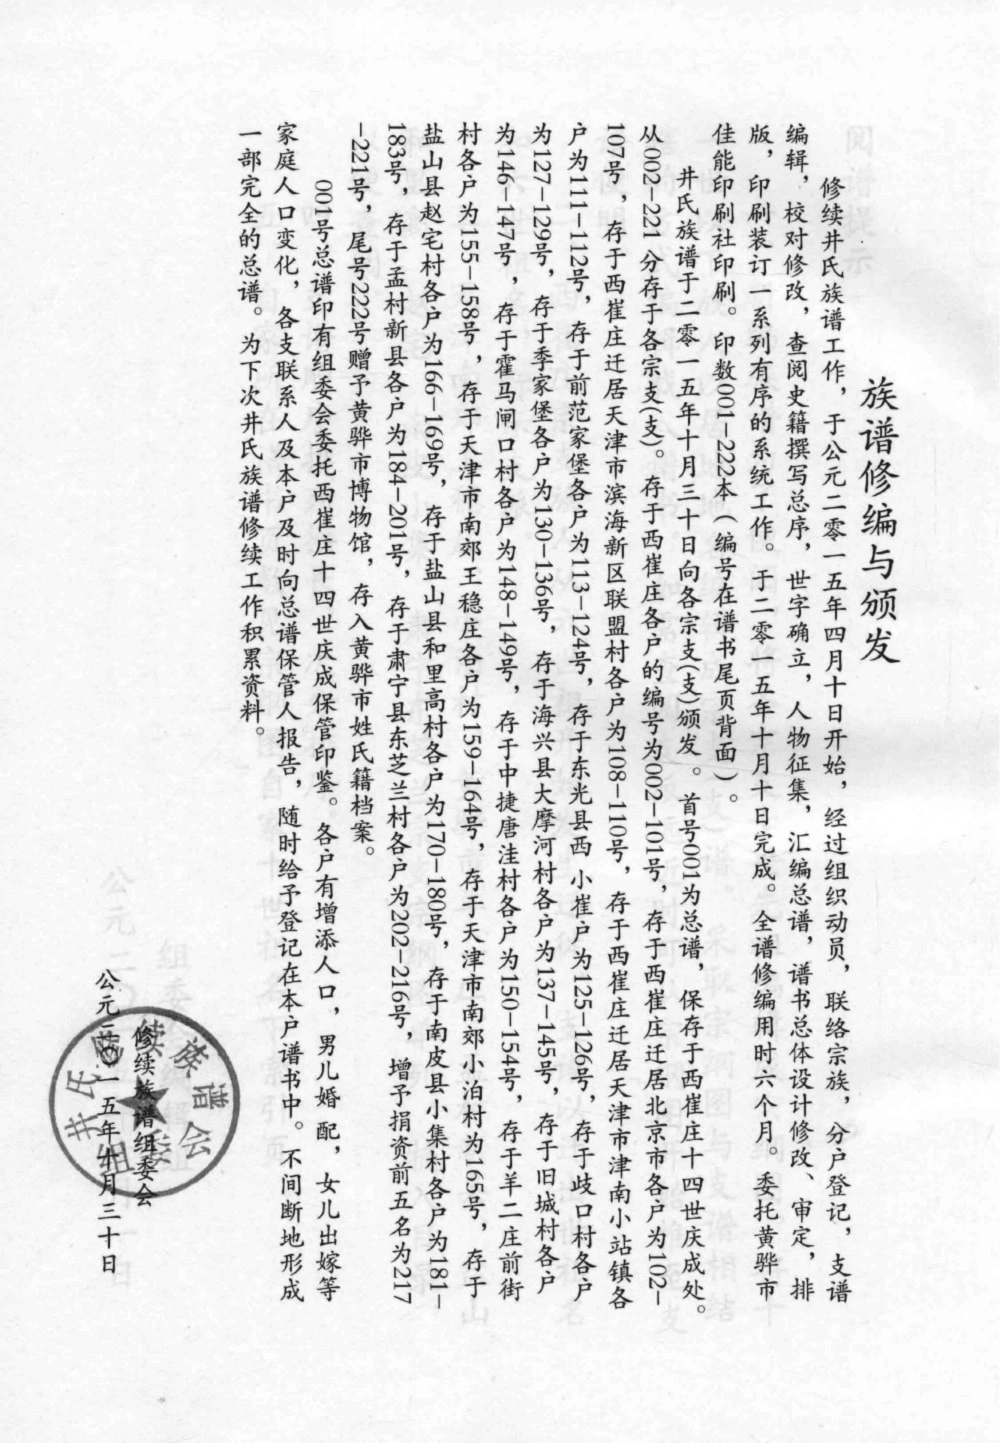 族谱修编与颁发
修续井氏族谱工作，于公元二零一五年四月十日开始，经过组织动员，联络宗族，分户登记，支谱
编辑，校对修改，查阅史籍撰写总序，世字确立，人物征集，汇编总谱，谱书总体设计修改、审定，排
版，印刷装订一系列有序的系统工作。于二零一五年十月十日完成。全谱修编用时六个月。委托黄骅市
佳能印刷社印刷。印数001-222本（编号在谱书尾页背面）。
井氏族谱于二零一五年十月三十日向各宗支(支)颁发。首号001为总谱，保存于西崔庄十四世庆成处。
从002-221 分存于各宗支(支)。存于西崔庄各户的编号为002-101号，存于西崔庄迁居北京市各户为102-
107号，存于西崔庄迁居天津市滨海新区联盟村各户为108-110号，存于西崔庄迁居天津市津南小站镇各
户为111-112号，存于前范家堡各户为113-124号，存于东光县西 小崔户为125-126号，存于歧口村各户
为127-129号，存于季家堡各户为130-136号，存于海兴县大摩河村各户为137-145号，存于旧城村各户
为146-147号，存于霍马闸口村各户为148-149号，存于中捷唐洼村各户为150-154号，存于羊二庄前街
村各户为155-158号，存于天津市南郊王稳庄各户为159-164号，存于天津市南郊小泊村为165号，存于
盐山县赵宅村各户为166-169号，存于盐山县和里高村各户为170-180号，存于南皮县小集村各户为181-
183号，存于孟村新县各户为184-201号，存于肃宁县东芝兰村各户为202-216号，增予捐资前五名为217
-221号，尾号222号赠予黄骅市博物馆，存入黄骅市姓氏籍档案。
001号总谱印有组委会委托西崔庄十四世庆成保管印鉴。各户有增添人口，男儿婚配，女儿出嫁等
家庭人口变化，各支联系人及本户及时向总谱保管人报告，随时给予登记在本户谱书中。不间断地形成
一部完全的总谱。为下次井氏族谱修续工作积累资料。
修续族谱组委会
公元二〇一五年十月三十日
井氏 续族谱
组委会